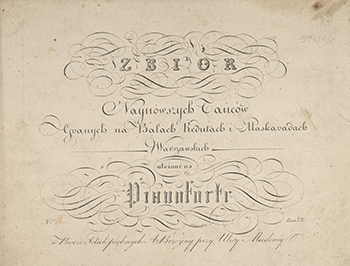 ZBIÓR
Naynowszych Tańców
Granych na Balach Redutach i Maskaradach
Warszawskich
ułożone na
Pianoforte
No
w Składzie Sztuk pięknych A. Brzeziny przy Ulicy Miodowey